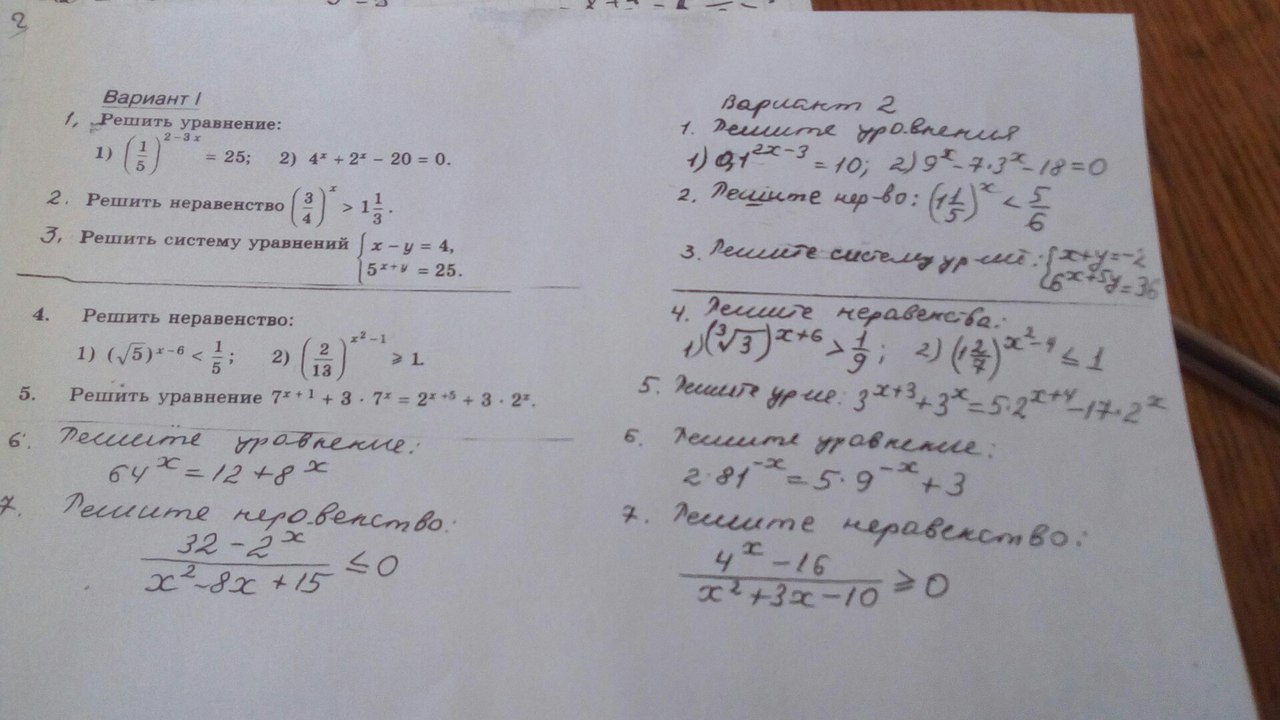 Вариант I
1, Решить уравнение:
1) (1/5)^(2-3x) = 25; 2) 4^x + 2^x − 20 = 0.
2. Решить неравенство (3/4)^x > 1 1/3.
3, Решить систему уравнений { x − y = 4,
5^(x+y) = 25.
4. Решить неравенство:
1) (√5)^(x−6) < 1/5; 2) (2/13)^(x²−1) ⩾ 1.
5. Решить уравнение 7^(x+1) + 3 · 7^x = 2^(x+5) + 3 · 2^x.
6. Решите уравнение:
64^x = 12 + 8^x
7. Решите неравенство:
(32 − 2^x)/(x² − 8x + 15) ≤ 0
Вариант 2
1. Решите уравнения
1) 0,1^(2x−3) = 10; 2) 9^x − 7·3^x − 18 = 0
2. Решите нер-во: (1 1/5)^x < 5/6
3. Решите систему ур-ний: { x+y=−2
6^(x+5y) = 36
4. Решите неравенства:
1) (∛3)^(x+6) > 1/9; 2) (1 2/7)^(x²−4) ≤ 1
5. Решите ур-ие: 3^(x+3) + 3^x = 5·2^(x+4) − 17·2^x
6. Решите уравнение:
2·81^(−x) = 5·9^(−x) + 3
7. Решите неравенство:
(4^x − 16)/(x² + 3x − 10) ⩾ 0